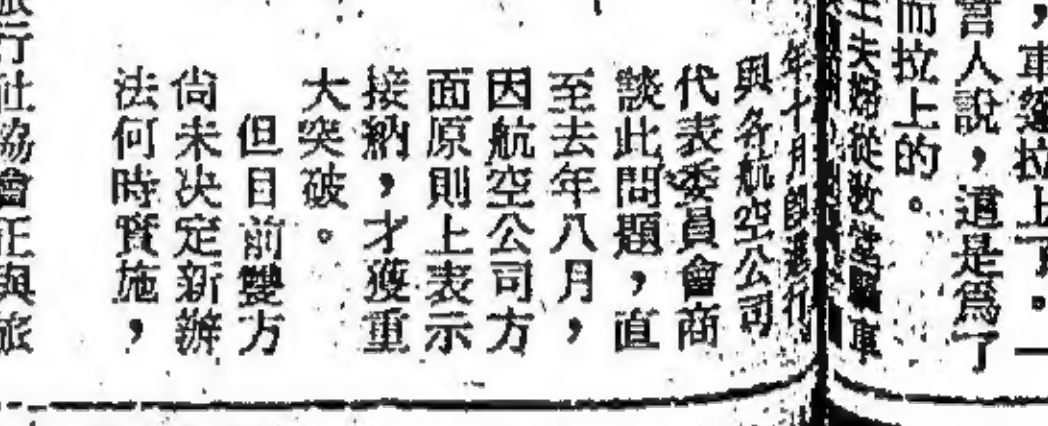 ，車簾拉上了。一
人說，這是爲了
而拉上的。
年十月即進行
與各航空公司
代表委員會商
談此問題，直
至去年八月，
因航空公司方
面原則上表示
接納，才獲重
大突破。
但目前雙方
尚未決定新辦
法何時實施，
旅行社協會正與旅